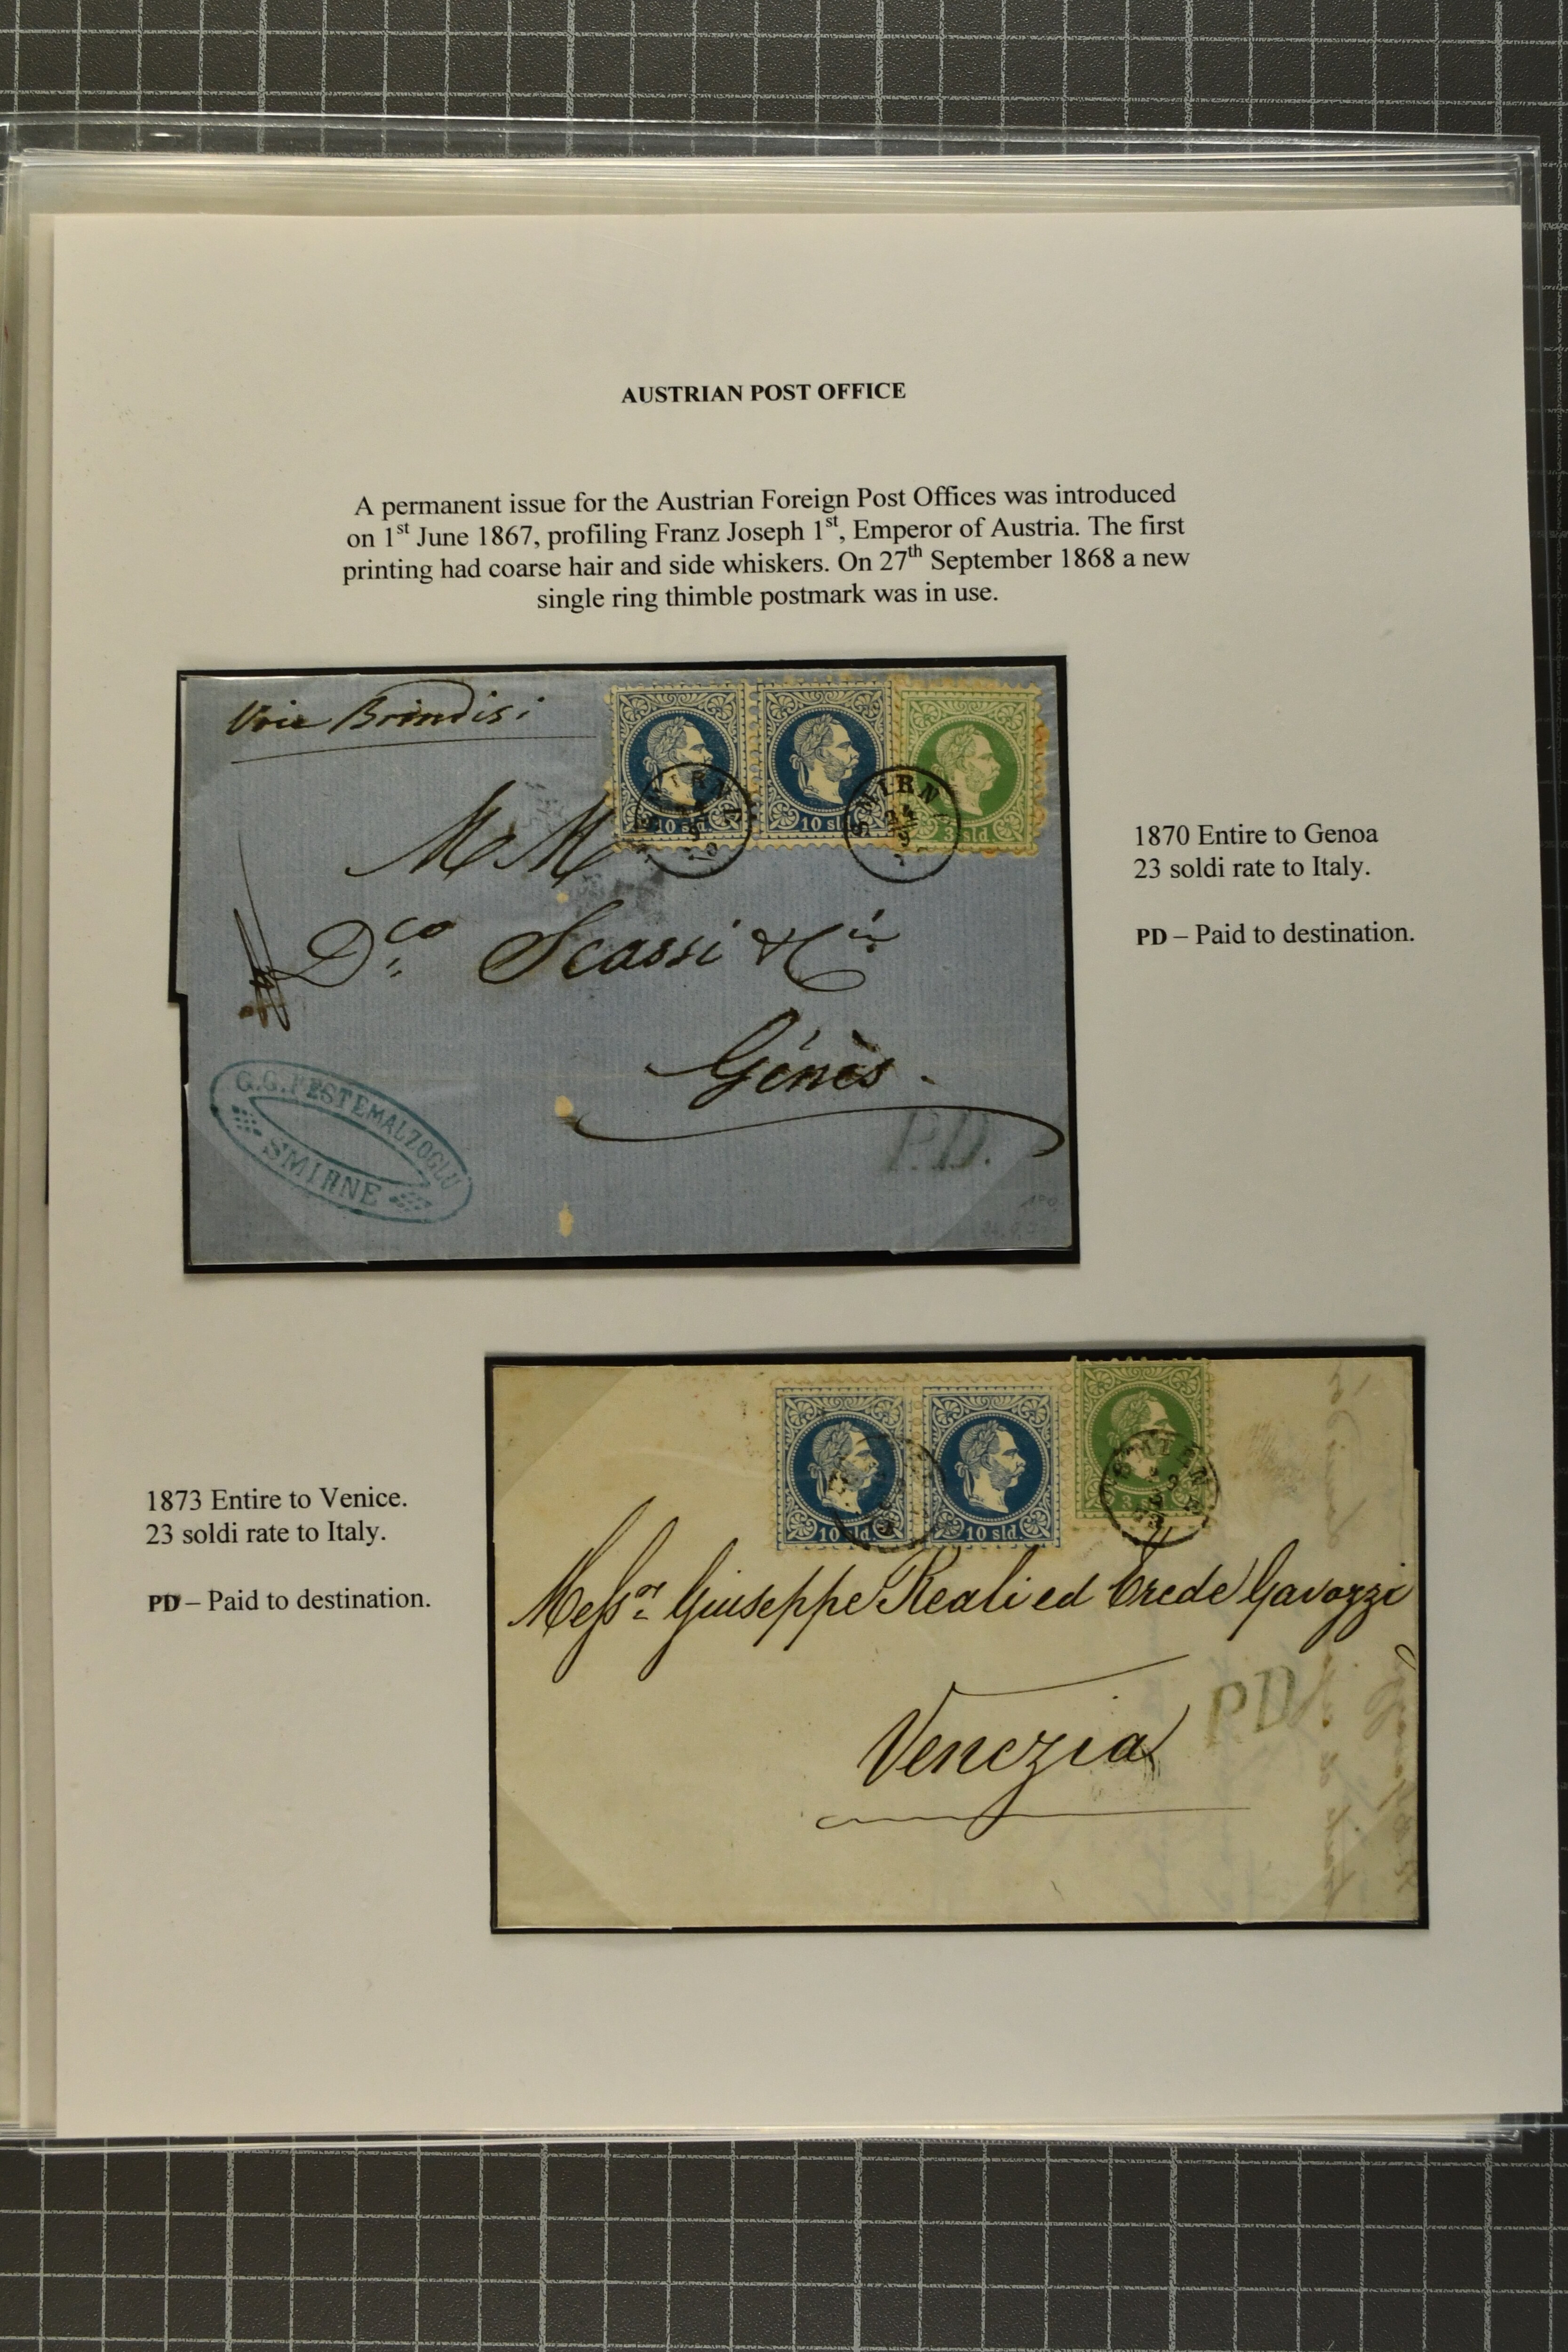 AUSTRIAN POST OFFICE
A permanent issue for the Austrian Foreign Post Offices was introduced
on 1st June 1867, profiling Franz Joseph 1st, Emperor of Austria. The first
printing had coarse hair and side whiskers. On 27th September 1868 a new
single ring thimble postmark was in use.
Voie Brindisi
10 sld.
10 sld.
3 sld
SMIRN
M M
Dco Scassi & Cie
Génès.
G.G. PESTEMALZOGLU
SMIRNE
P.D.
1870 Entire to Genoa
23 soldi rate to Italy.
PD – Paid to destination.
1873 Entire to Venice.
23 soldi rate to Italy.
PD – Paid to destination.
10 sld.
10 sld.
Messrs Giuseppe Reali ed Erede Gavazzi
P.D.
Venezia